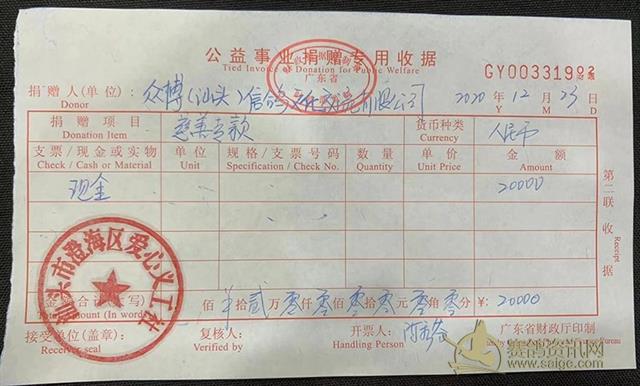 公益事业捐赠专用收据
Tied Invoice of Donation for Public Welfare
广东省
GY00331992
捐赠人(单位): 众博(汕头)信鸽文化交流有限公司 2020年12月23日
Donor Y M D
捐赠项目 慈善专款 货币种类 人民币
Donation Item Currency
支票/现金或实物 单位 规格/支票号码 数量 单价 金额
Check / Cash or Material Unit Specification / Check No. Quantity Unit Price Amount
现金 20000
第二联 收据
Receipt
汕头市澄海区爱心义工社
佰 拾贰万零仟零佰零拾零元零角零分 ¥: 20000
Total Amount (In words)
接受单位(盖章): 复核人: 开票人: 广东省财政厅印制
Receiver seal Verified by Handling Person
赛鸽资讯网
www.saige.com